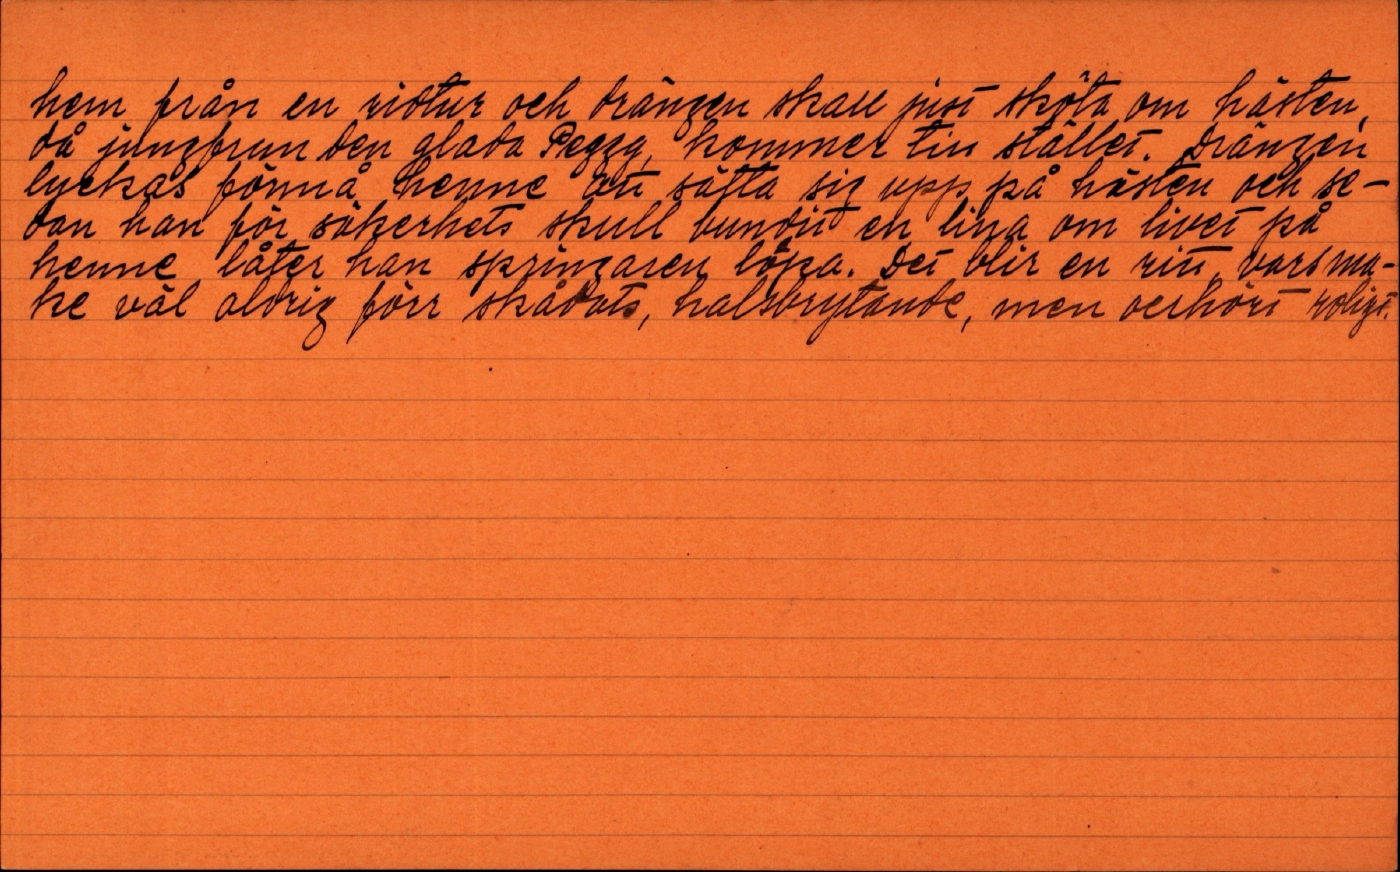 hem från en ridtur och drängen skall just sköta om hästen,
då jungfrun den glada Peggy, kommer till stället. Drängen
lyckas förmå henne att sätta sig upp på hästen och se-
dan han för säkerhets skull bundit en lina om livet på
henne låter han springaren löpa. Det blir en ritt, vars ma-
ke väl aldrig förr skådats, halsbrytande, men oerhört roligt.